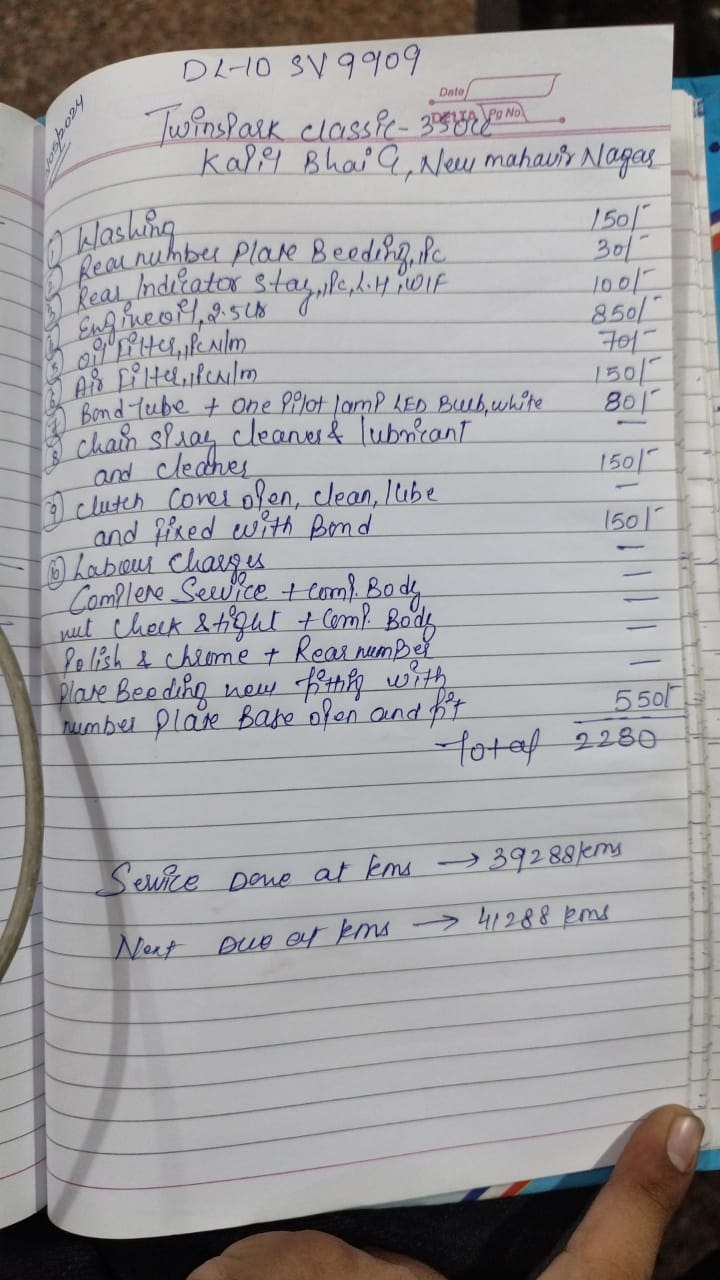 DL-10 SV 9909
Date
DELTA Pg No.
Twinspark classic-350cc
Kapil Bhai G, New mahavir Nagar
① Washing 150/-
② Rear number Plate Beeding, 1Pc 30/-
③ Rear Indicator Stay, 1Pc, L.H, W/F 100/-
④ Engine oil, 2.5 Ltr 850/-
⑤ Oil Filter, 1Pc N/m 70/-
⑥ Air Filter, 1Pc N/m 150/-
⑦ Bond tube + one Pilot lamp LED Bulb, white 80/-
⑧ Chain spray cleaner & lubricant —
and cleaner 150/-
⑨ Clutch Cover open, clean, lube —
and fixed with Bond 150/-
⑩ Labour Charges —
Complete Service + Comp. Body —
nut Check & tight + Comp. Body —
Polish & chrome + Rear number —
Plate Beeding new fitting with —
number Plate Base open and fit 550/-
Total 2280
Service Done at kms → 39288 kms
Next Due at kms → 41288 kms